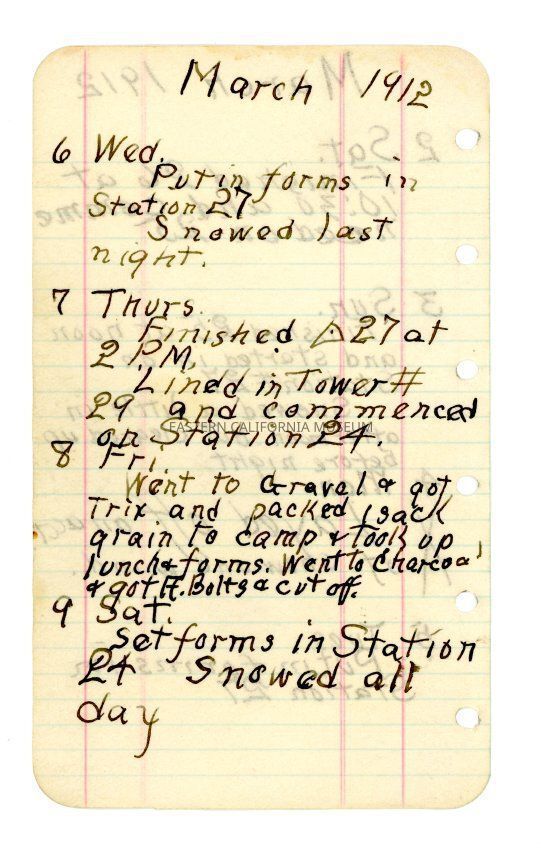 March 1912
6 Wed.
Put in forms in
Station 27
Snowed last
night.
7 Thurs.
Finished △ 27 at
2 P.M.
Lined in Tower #
29 and commenced
on Station 24.
EASTERN CALIFORNIA MUSEUM
8 Fri.
Went to Gravel & got
Trix and packed 1 sack
grain to camp & took up
lunch & forms. Went to Charcoal
& got ft. Bolts & cut off.
9 Sat.
Set forms in Station
24 Snowed all
day